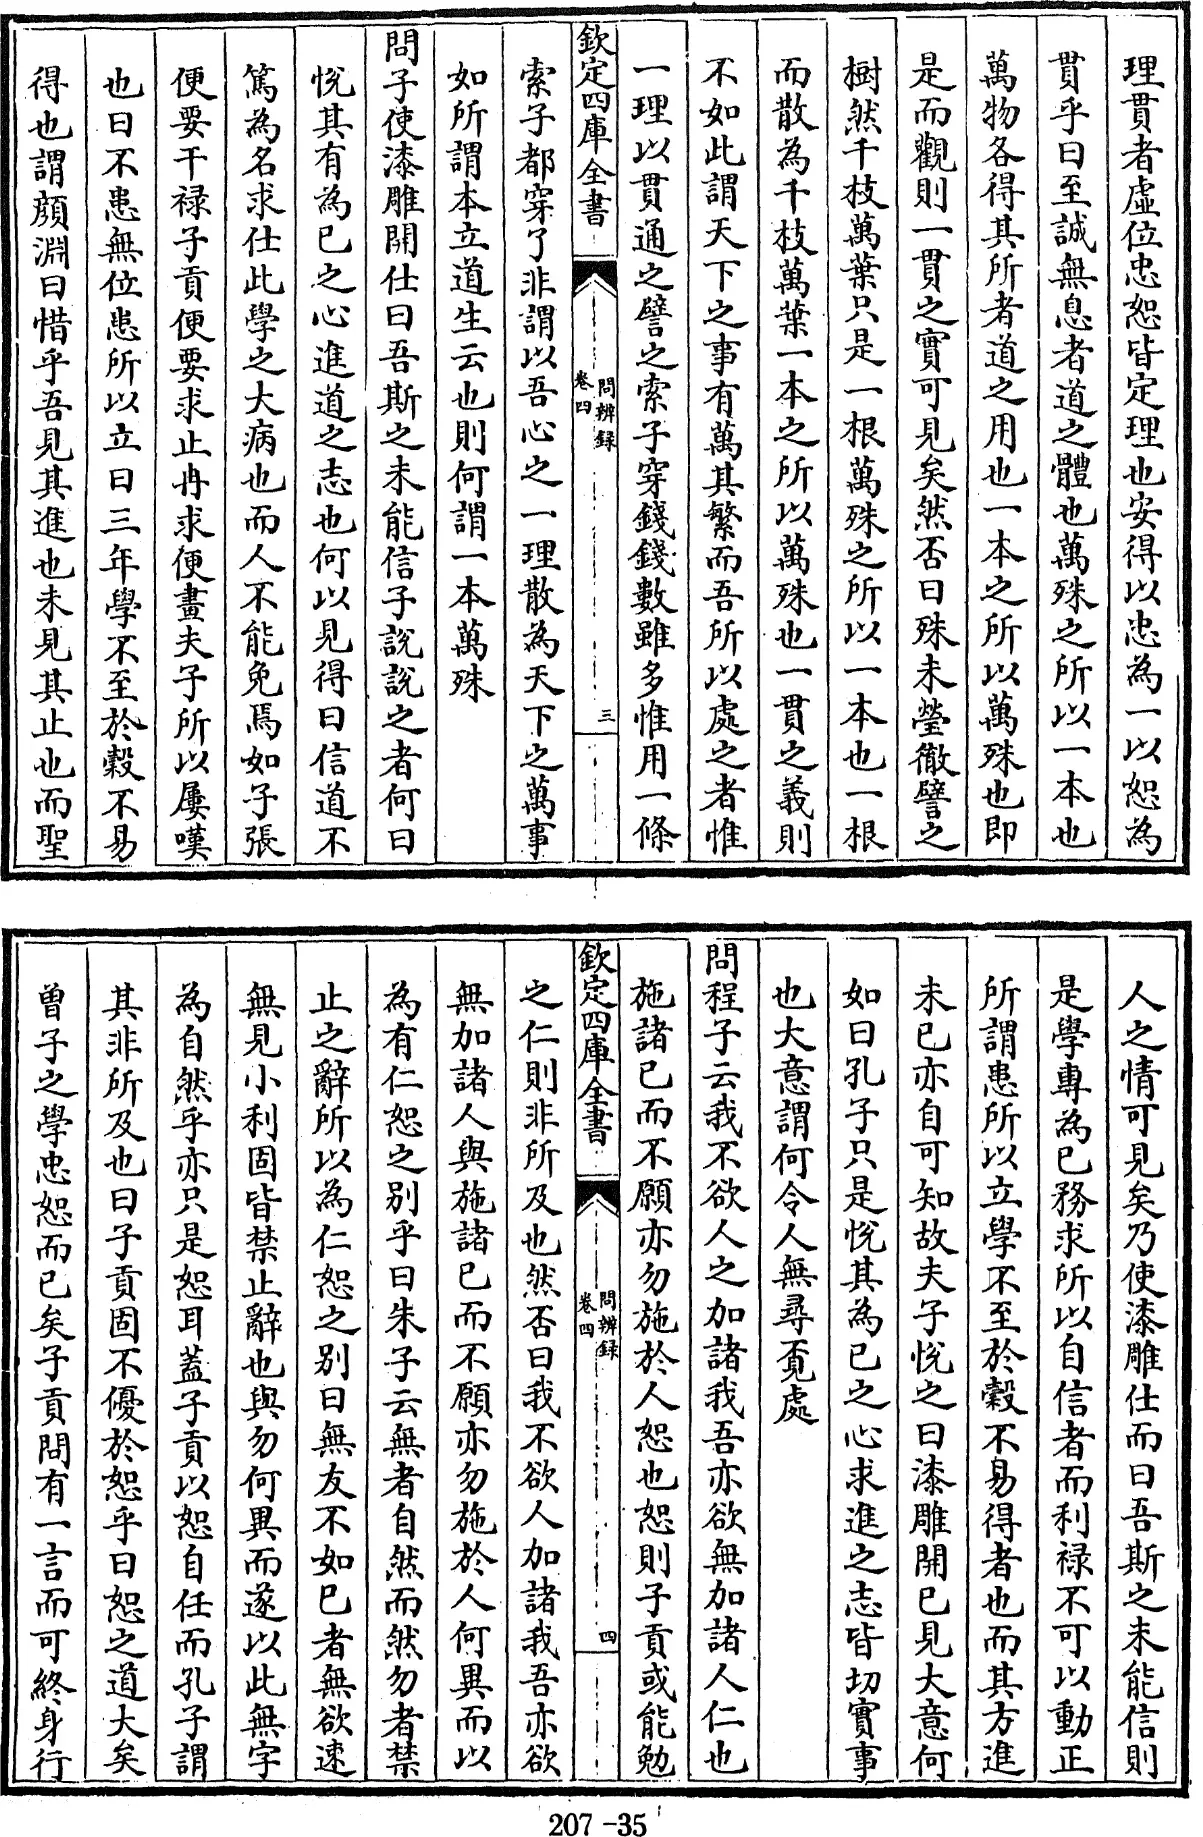 理貫者虛位忠恕皆定理也安得以忠為一以恕為
貫乎曰至誠無息者道之體也萬殊之所以一本也
萬物各得其所者道之用也一本之所以萬殊也即
是而觀則一貫之實可見矣然否曰殊未瑩徹譬之
樹然千枝萬葉只是一根萬殊之所以一本也一根
而散為千枝萬葉一本之所以萬殊也一貫之義則
不如此謂天下之事有萬其繁而吾所以處之者惟
一理以貫通之譬之索子穿錢錢數雖多惟用一條
欽定四庫全書
問辨錄
卷四
三
索子都穿了非謂以吾心之一理散為天下之萬事
如所謂本立道生云也則何謂一本萬殊
問子使漆雕開仕曰吾斯之未能信子說說之者何曰
悅其有為己之心進道之志也何以見得曰信道不
篤為名求仕此學之大病也而人不能免焉如子張
便要干祿子貢便要求止冉求便畫夫子所以屢嘆
也曰不患無位患所以立曰三年學不至於穀不易
得也謂顏淵曰惜乎吾見其進也未見其止也而聖
人之情可見矣乃使漆雕仕而曰吾斯之未能信則
是學專為己務求所以自信者而利祿不可以動正
所謂患所以立學不至於穀不易得者也而其方進
未已亦自可知故夫子悅之曰漆雕開已見大意何
如曰孔子只是悅其為己之心求進之志皆切實事
也大意謂何令人無尋覔處
問程子云我不欲人之加諸我吾亦欲無加諸人仁也
施諸己而不願亦勿施於人恕也恕則子貢或能勉
欽定四庫全書
問辨錄
卷四
四
之仁則非所及也然否曰我不欲人加諸我吾亦欲
無加諸人與施諸己而不願亦勿施於人何異而以
為有仁恕之別乎曰朱子云無者自然而然勿者禁
止之辭所以為仁恕之別曰無友不如己者無欲速
無見小利固皆禁止辭也與勿何異而遂以此無字
為自然乎亦只是恕耳蓋子貢以恕自任而孔子謂
其非所及也曰子貢固不優於恕乎曰恕之道大矣
曾子之學忠恕而已矣子貢問有一言而可終身行
207-35